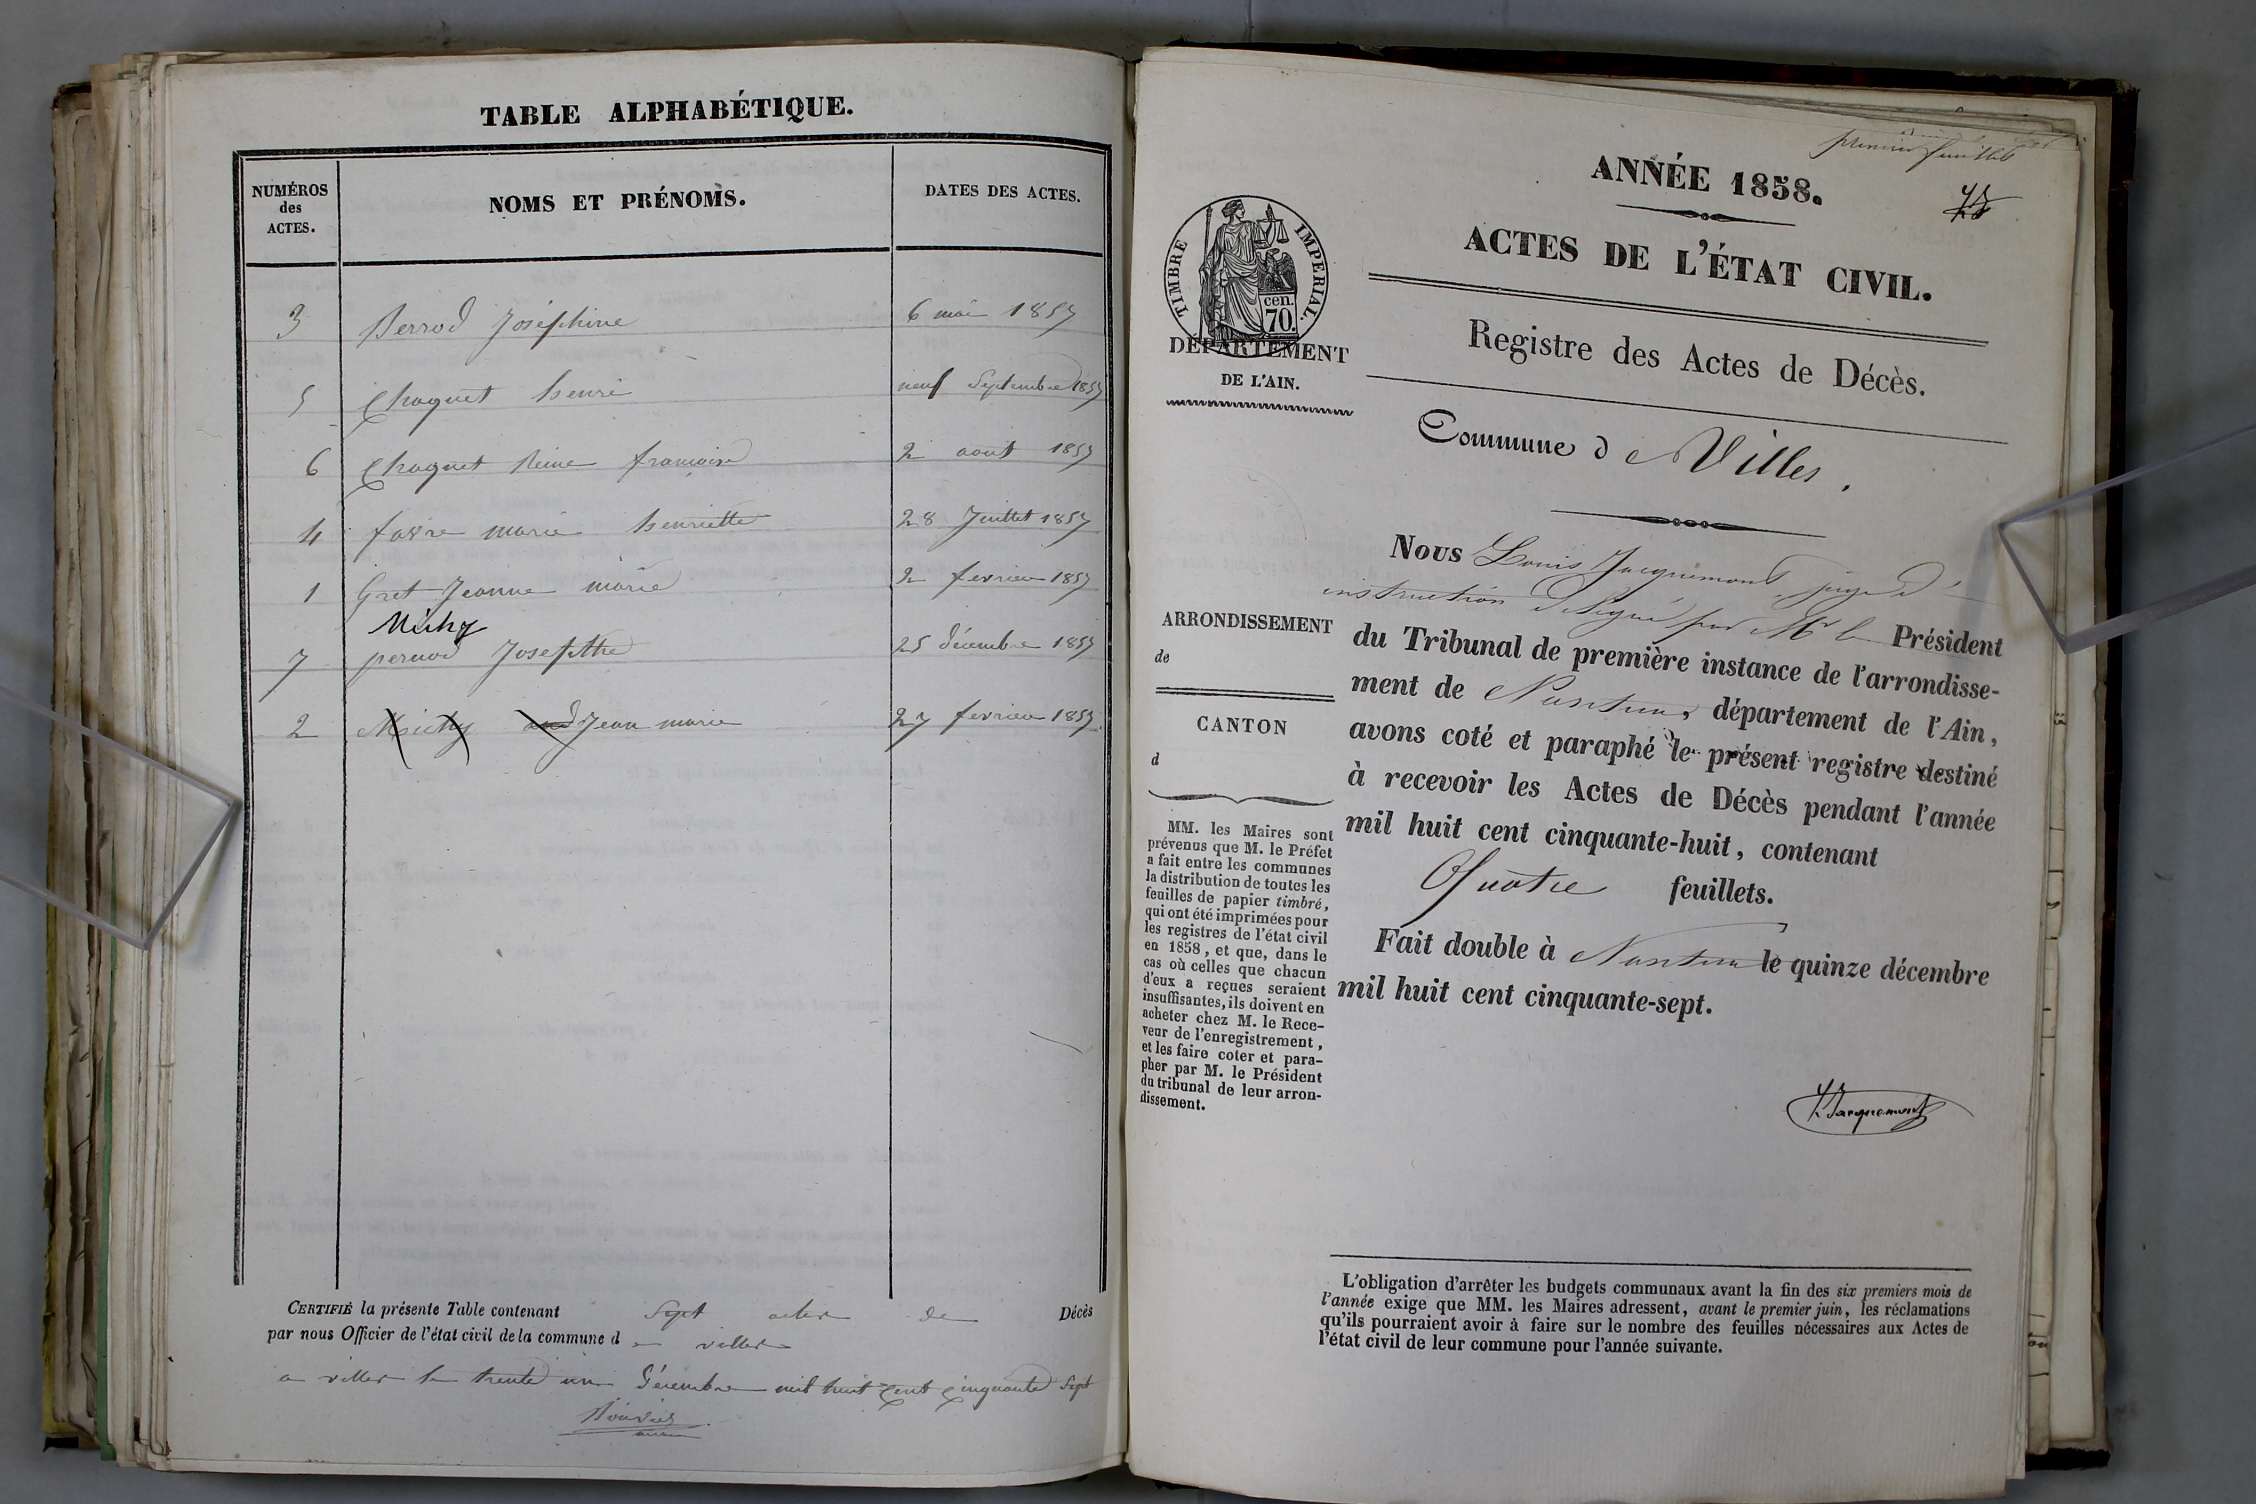 TABLE ALPHABÉTIQUE.
NUMÉROS des ACTES.
NOMS ET PRÉNOMS.
DATES DES ACTES.
3 Berrod Joséphine 6 mai 1857
5 Chaquet henri neuf Septembre 1857
6 Chaquet Reine francoise 2 aout 1857
4 favre marie henriette 28 Juillet 1857
1 Gret Jeanne marie 2 fevrier 1857
Michy
7 pernod Josephte 25 décembre 1857
2 Michy Jean marie 27 fevrier 1857
CERTIFIÉ la présente Table contenant Sept actes de Décès
par nous Officier de l'état civil de la commune d e villes
a villes le trente un décembre mil huit cent cinquante Sept
premier feuillet
ANNÉE 1858.
ACTES DE L'ÉTAT CIVIL.
TIMBRE IMPERIAL.
cen.
70.
DÉPARTEMENT
DE L'AIN.
Registre des Actes de Décès.
Commune de Villes.
Nous Louis Jacquemont, juge d'
instruction délégué par Mr le Président
du Tribunal de première instance de l'arrondisse-
ment de Nantua, département de l'Ain,
avons coté et paraphé le présent registre destiné
à recevoir les Actes de Décès pendant l'année
mil huit cent cinquante-huit, contenant
Quatre feuillets.
Fait double à Nantua le quinze décembre
mil huit cent cinquante-sept.
L. Jacquemont
ARRONDISSEMENT
de
CANTON
d
MM. les Maires sont
prévenus que M. le Préfet
a fait entre les communes
la distribution de toutes les
feuilles de papier timbré,
qui ont été imprimées pour
les registres de l'état civil
en 1858, et que, dans le
cas où celles que chacun
d'eux a reçues seraient
insuffisantes, ils doivent en
acheter chez M. le Rece-
veur de l'enregistrement,
et les faire coter et para-
pher par M. le Président
du tribunal de leur arron-
dissement.
L'obligation d'arrêter les budgets communaux avant la fin des six premiers mois de
l'année exige que MM. les Maires adressent, avant le premier juin, les réclamations
qu'ils pourraient avoir à faire sur le nombre des feuilles nécessaires aux Actes de
l'état civil de leur commune pour l'année suivante.